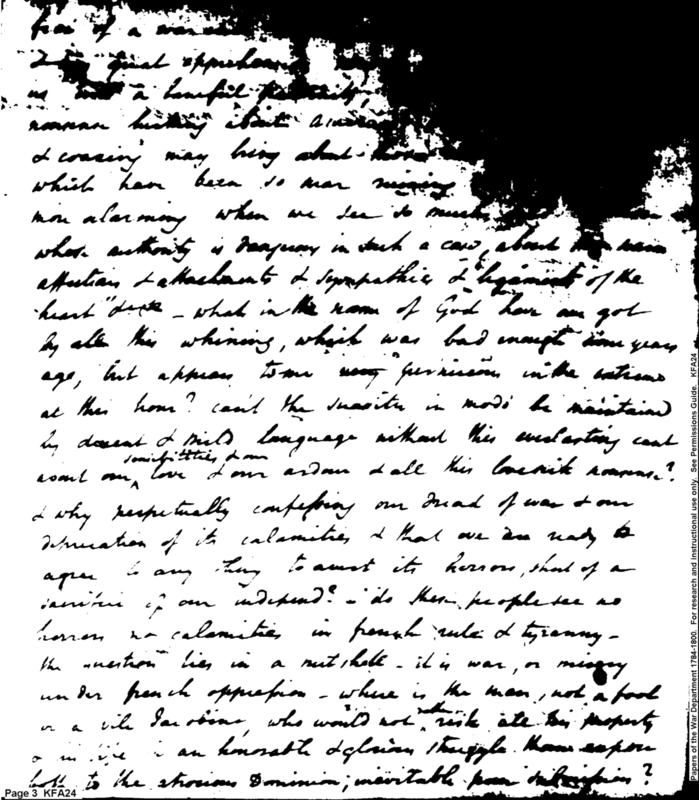 fear of a war
& great apprehen
us a baneful
nonsense about
& coaxing may bring about those
which have been so near
more alarming when we see so much
whose authority is dangerous in such a case, about
affections & attachments & sympathies & "ligaments of the
heart" &c - what in the name of God have we got
by all this whining, which was bad enough some years
ago, but appears to me very pernicious in the extreme
at this hour? can't the suaviter in modo be maintained
by decent & mild language without this everlasting cant
about our sensibilities & our love & our ardour & all this lovesick nonsense?
& why perpetually confessing our dread of war & our
deprecation of its calamities & that we are ready to
agree to any thing to avert its horrors, short of a
sacrifice of our independ? - do these people see no
horrors no calamities in french rule & tyranny -
the question lies in a nutshell - it is war, or misery
under french oppression - where is the man, not a fool
or a vile Jacobine, who would not rather risk all his property
in an honorable & glorious struggle than expose
both to the atrocious Dominion; inevitable from submission?
Page 3 KFA24
Papers of the War Department 1784-1800. For research and instructional use only. See Permissions Guide. KFA24